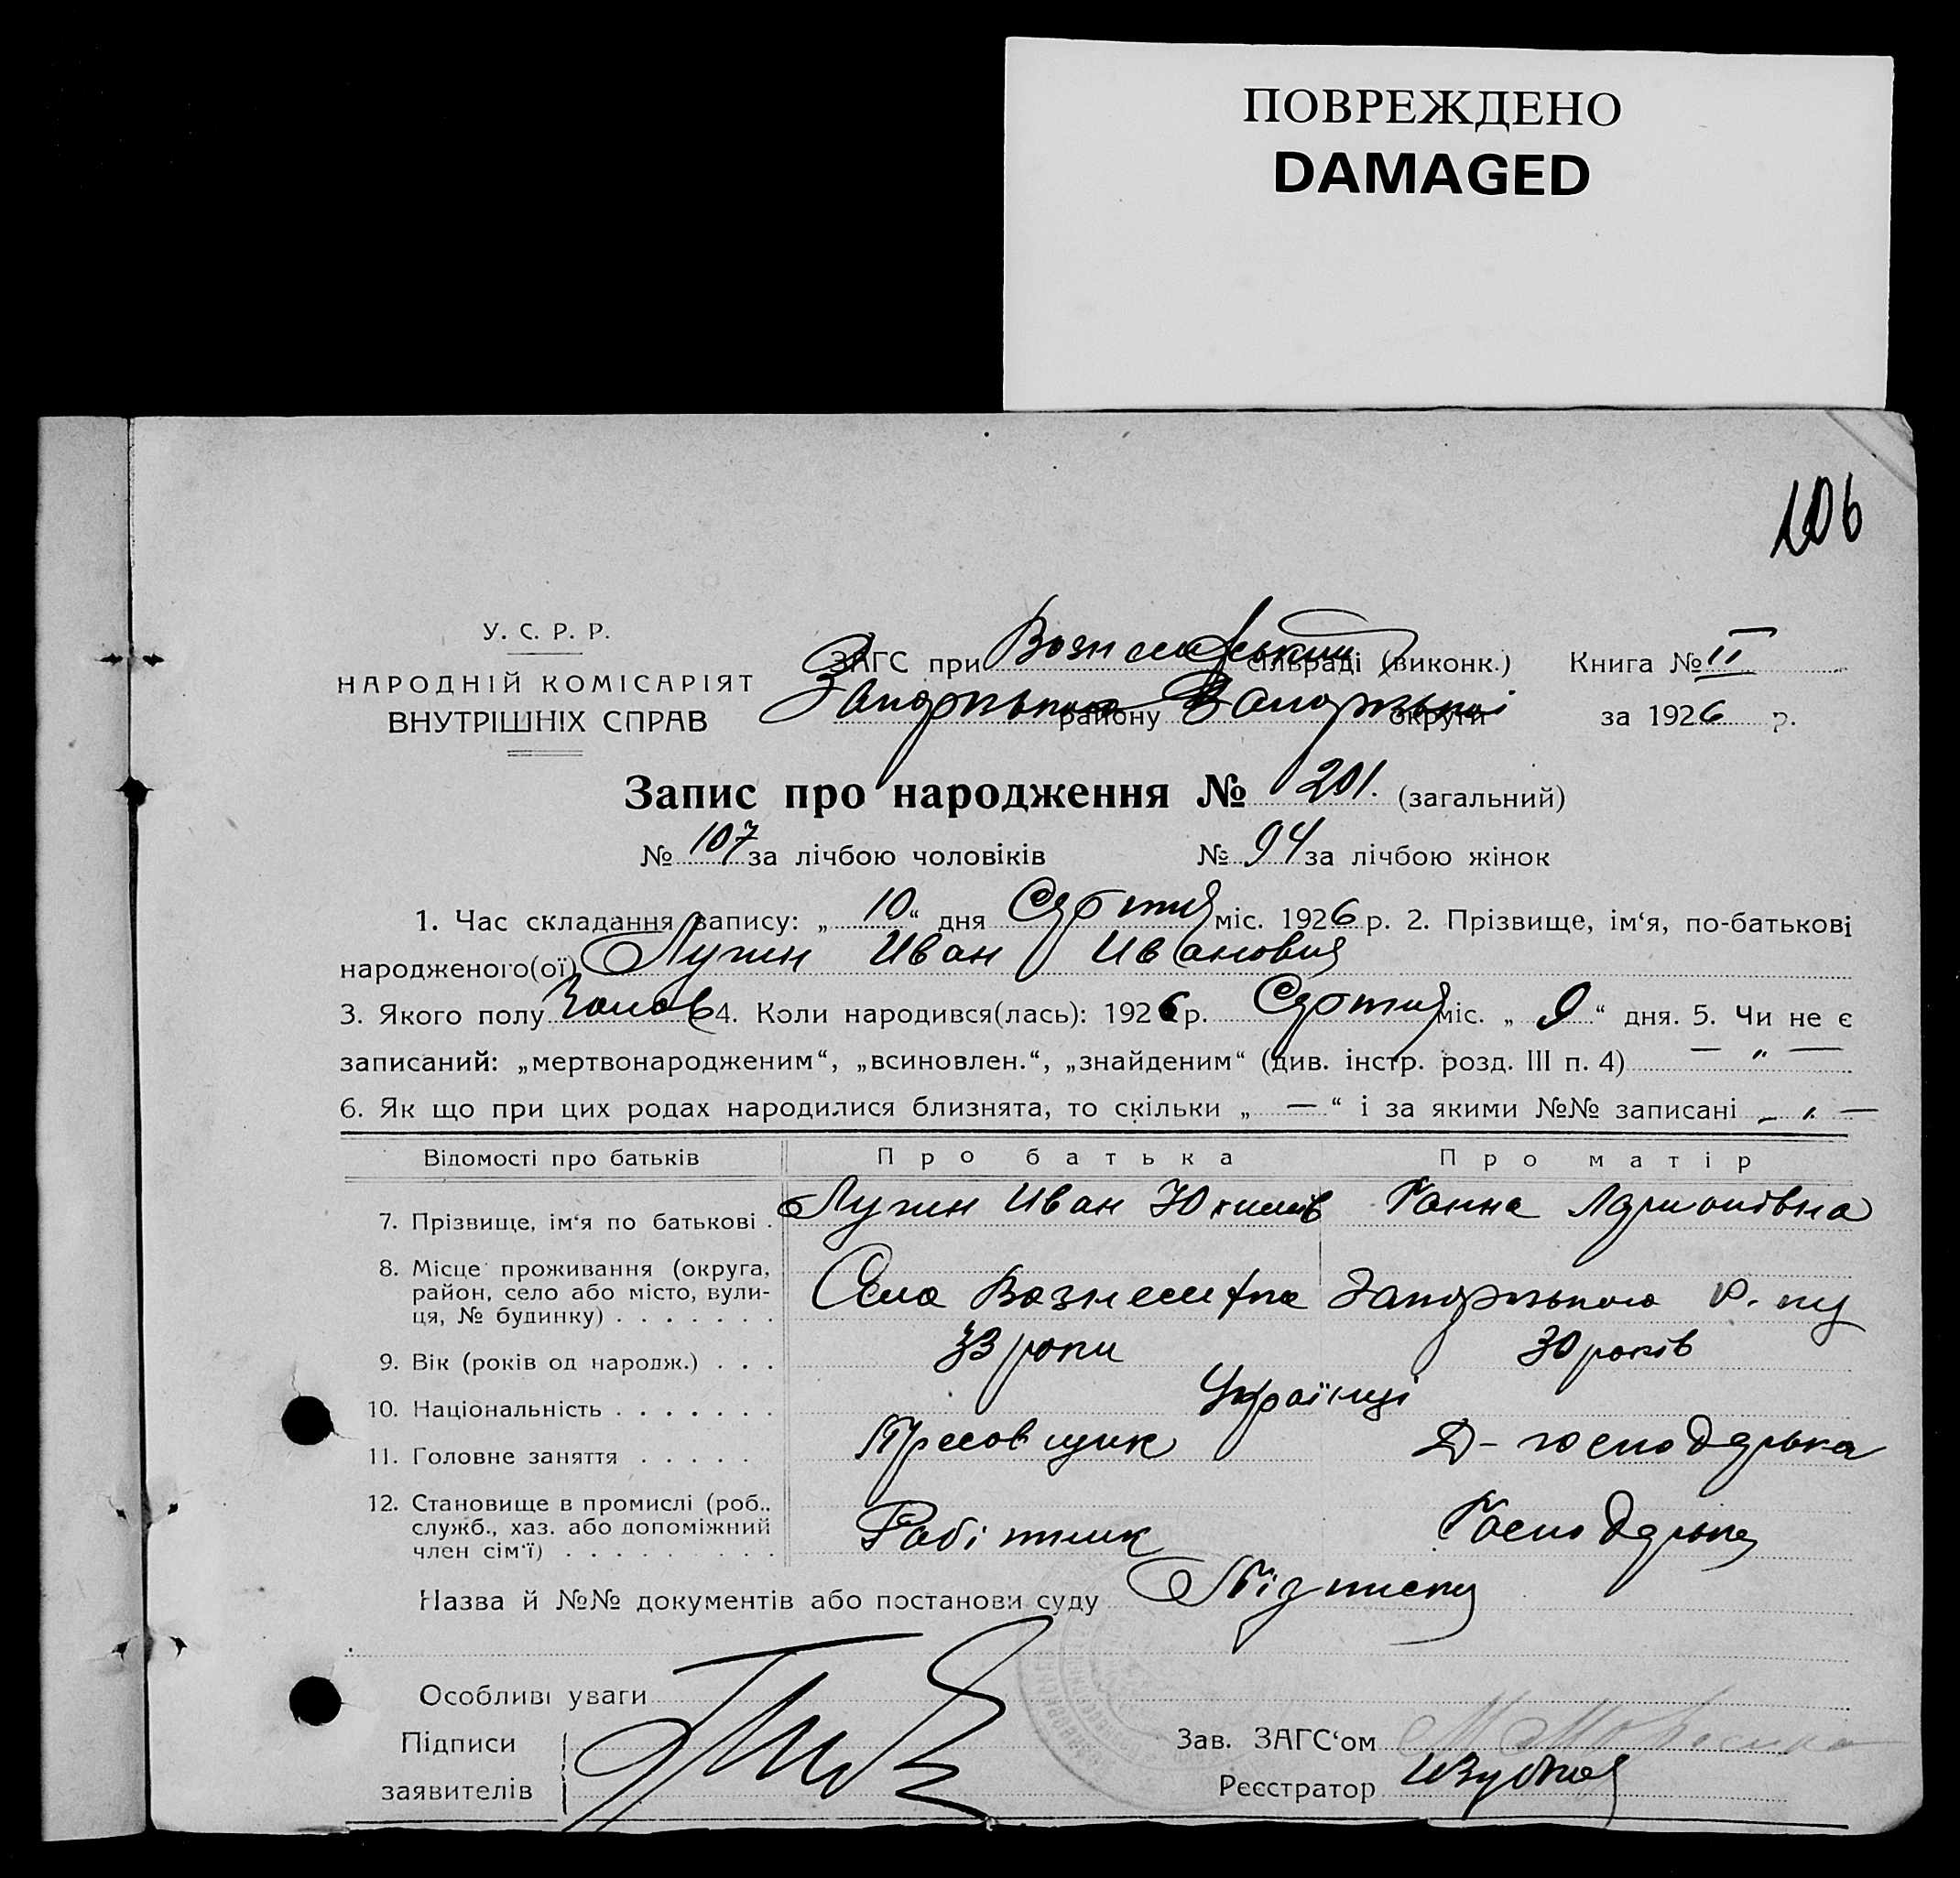 ПОВРЕЖДЕНО
DAMAGED
106
У. С. Р. Р.
НАРОДНІЙ КОМІСАРІЯТ
ВНУТРІШНІХ СПРАВ
ЗАГС при сільраді (виконк.) Книга № II
Запорізького району Запорізької округи за 1926 р.
Запис про народження № 201. (загальний)
№ 107 за лічбою чоловіків № 94 за лічбою жінок
1. Час складання запису: „10“ дня міс. 1926 р. 2. Прізвище, ім‘я, по-батькові
народженого(ої) Иван Иванович
3. Якого полу Чолов 4. Коли народився(лась): 1926 р. міс. „9“ дня. 5. Чи не є
записаний: „мертвонародженим“, „всиновлен.“, „знайденим“ (див. інстр. розд. III п. 4) — „ —
6. Як що при цих родах народилися близнята, то скільки „—“ і за якими №№ записані — „ —
Відомості про батьків Про батька Про матір
7. Прізвище, ім‘я по батькові . Иван Ганна
8. Місце проживання (округа,
район, село або місто, вули-
ця, № будинку) . . . . . . . Село Запорізького р-ну
9. Вік (років од народж.) . . . 33 роки 30 років
10. Національність . . . . . . . Українці
11. Головне заняття . . . . . Пресовщик Д-господарька
12. Становище в промислі (роб.,
служб., хаз. або допоміжний
член сім‘ї) . . . . . . . . . Робітник Господарька
Назва й №№ документів або постанови суду
Особливі уваги
Підписи
заявителів
Зав. ЗАГС‘ом
Реєстратор